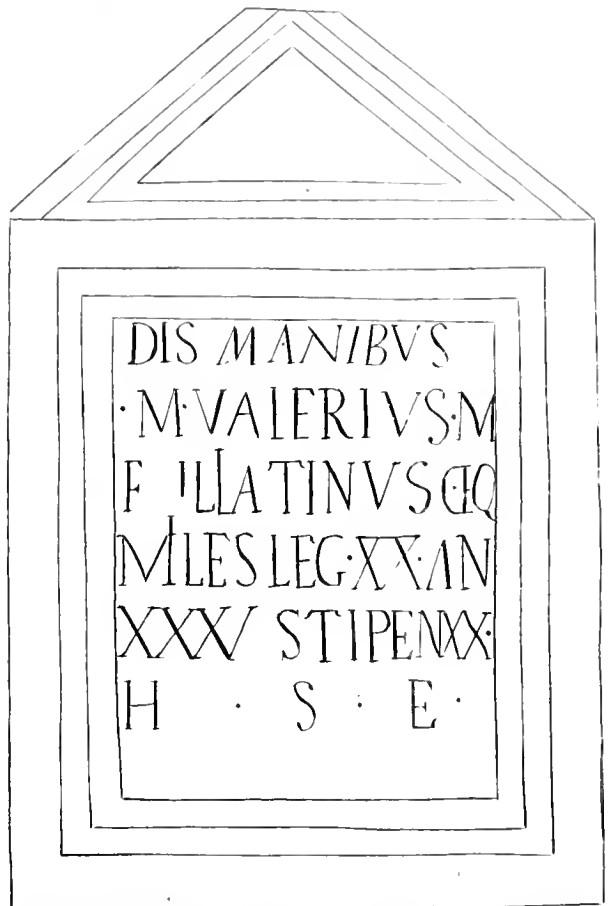 DIS MANIBVS
·M·VALERIVS·M
F ILLATINVS C·EQ
MILES LEG·XX·AN
XXXV STIPEN XX·
H · S · E ·